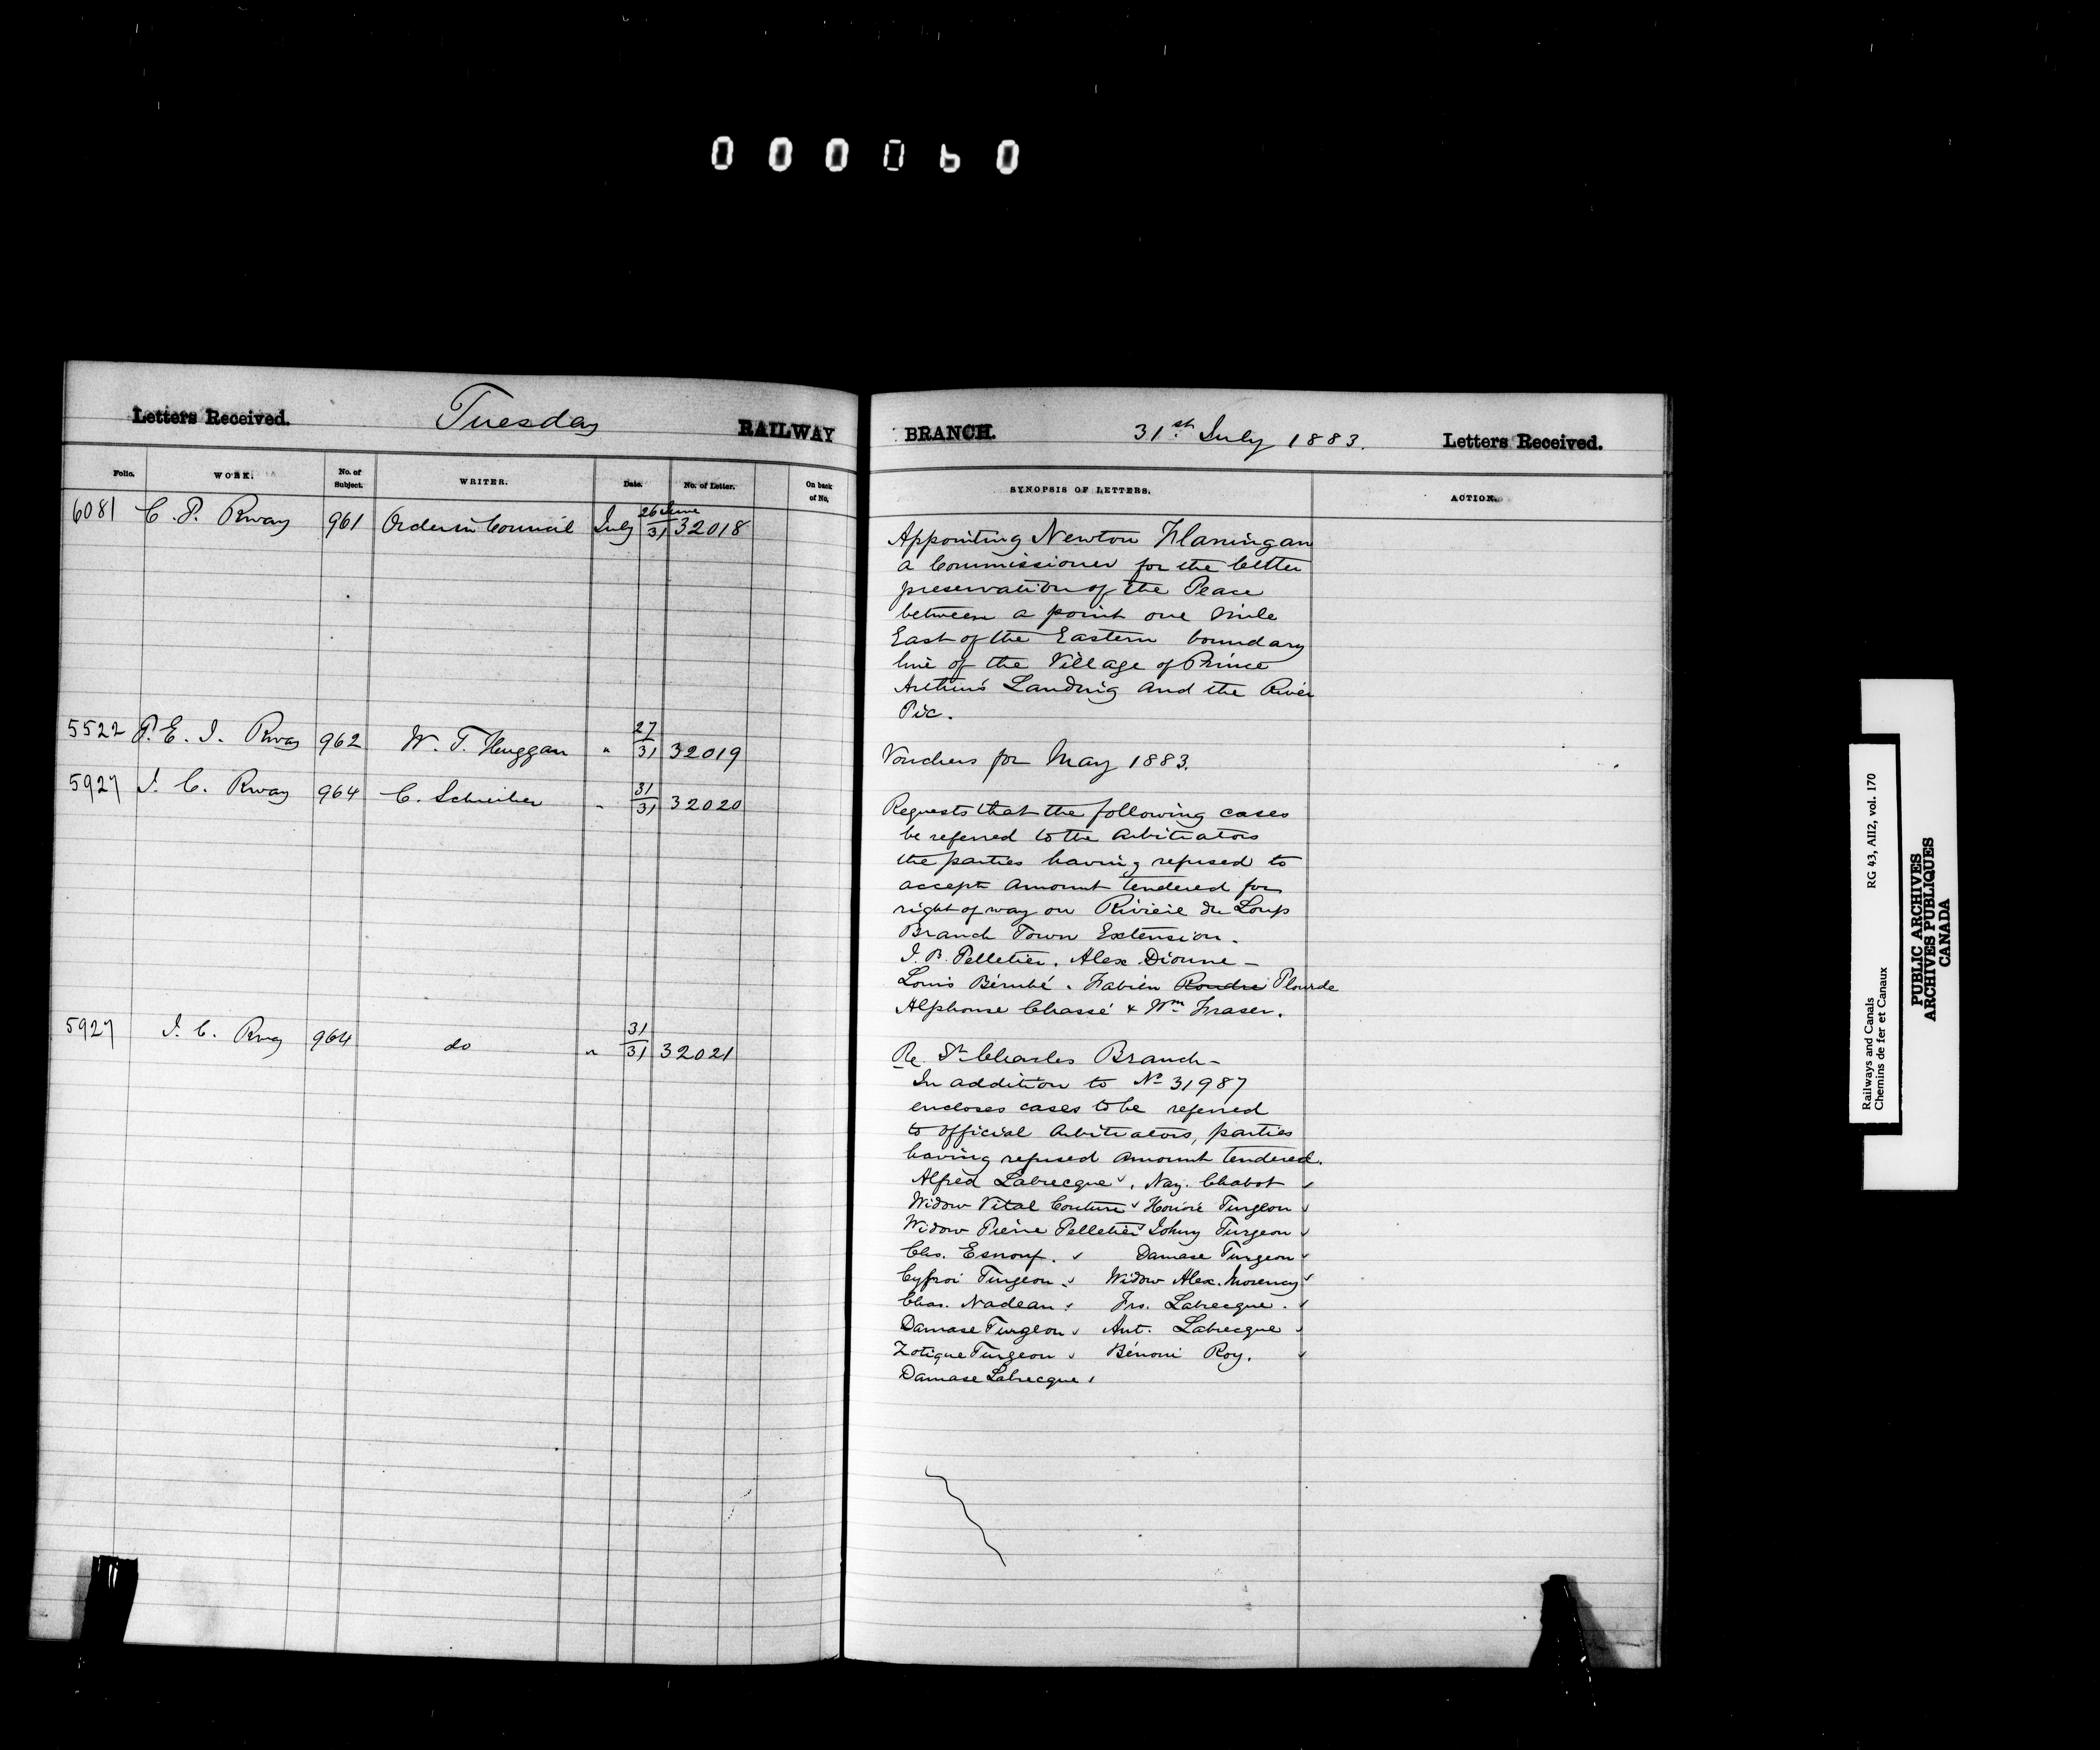 000060
Letters Received. Tuesday RAILWAY
Folio. WORK. No. of Subject. WRITER. Date. No. of Letter. On back of No.
6081 C. P. Rway 961 Order in Council July 26 June/31 32018
5522 P. E. I. Rway 962 W. T. Huggan " 27/31 32019
5927 I. C. Rway 964 C. Schreiber " 31/31 32020
5927 I. C. Rway 964 do " 31/31 32021
BRANCH. 31st July 1883. Letters Received.
SYNOPSIS OF LETTERS. ACTION.
Appointing Newton Flanningan
a Commissioner for the better
preservation of the Peace
between a point one mile
East of the Eastern boundary
line of the Village of Prince
Arthur's Landing and the River
Pic.
Vouchers for May 1883.
Requests that the following cases
be referred to the Arbitrators
the parties having refused to
accept amount tendered for
right of way on Riviere du Loup
Branch Town Extension.
J. B. Pelletier. Alex Dionne -
Louis Bérubé. Fabien Plourde
Alphonse Chassé & Wm Fraser.
Re St Charles Branch -
In addition to No 31987
encloses cases to be referred
to official Arbitrators, parties
having refused amount tendered.
Alfred Labrecque, Naz. Chabot
Widow Vital Couture Honoré Turgeon
Widow Pierre Pelletier Johny Turgeon
Chs. Esnouf. Damase Turgeon
Cyfroi Turgeon. Widow Alex. Morency
Chas. Nadeau. Frs. Labrecque.
Damase Turgeon Ant. Labrecque
Zotique Turgeon Bénoni Roy.
Damase Labrecque
Railways and Canals RG 43, AII2, vol. 170
Chemins de fer et Canaux
PUBLIC ARCHIVES
ARCHIVES PUBLIQUES
CANADA